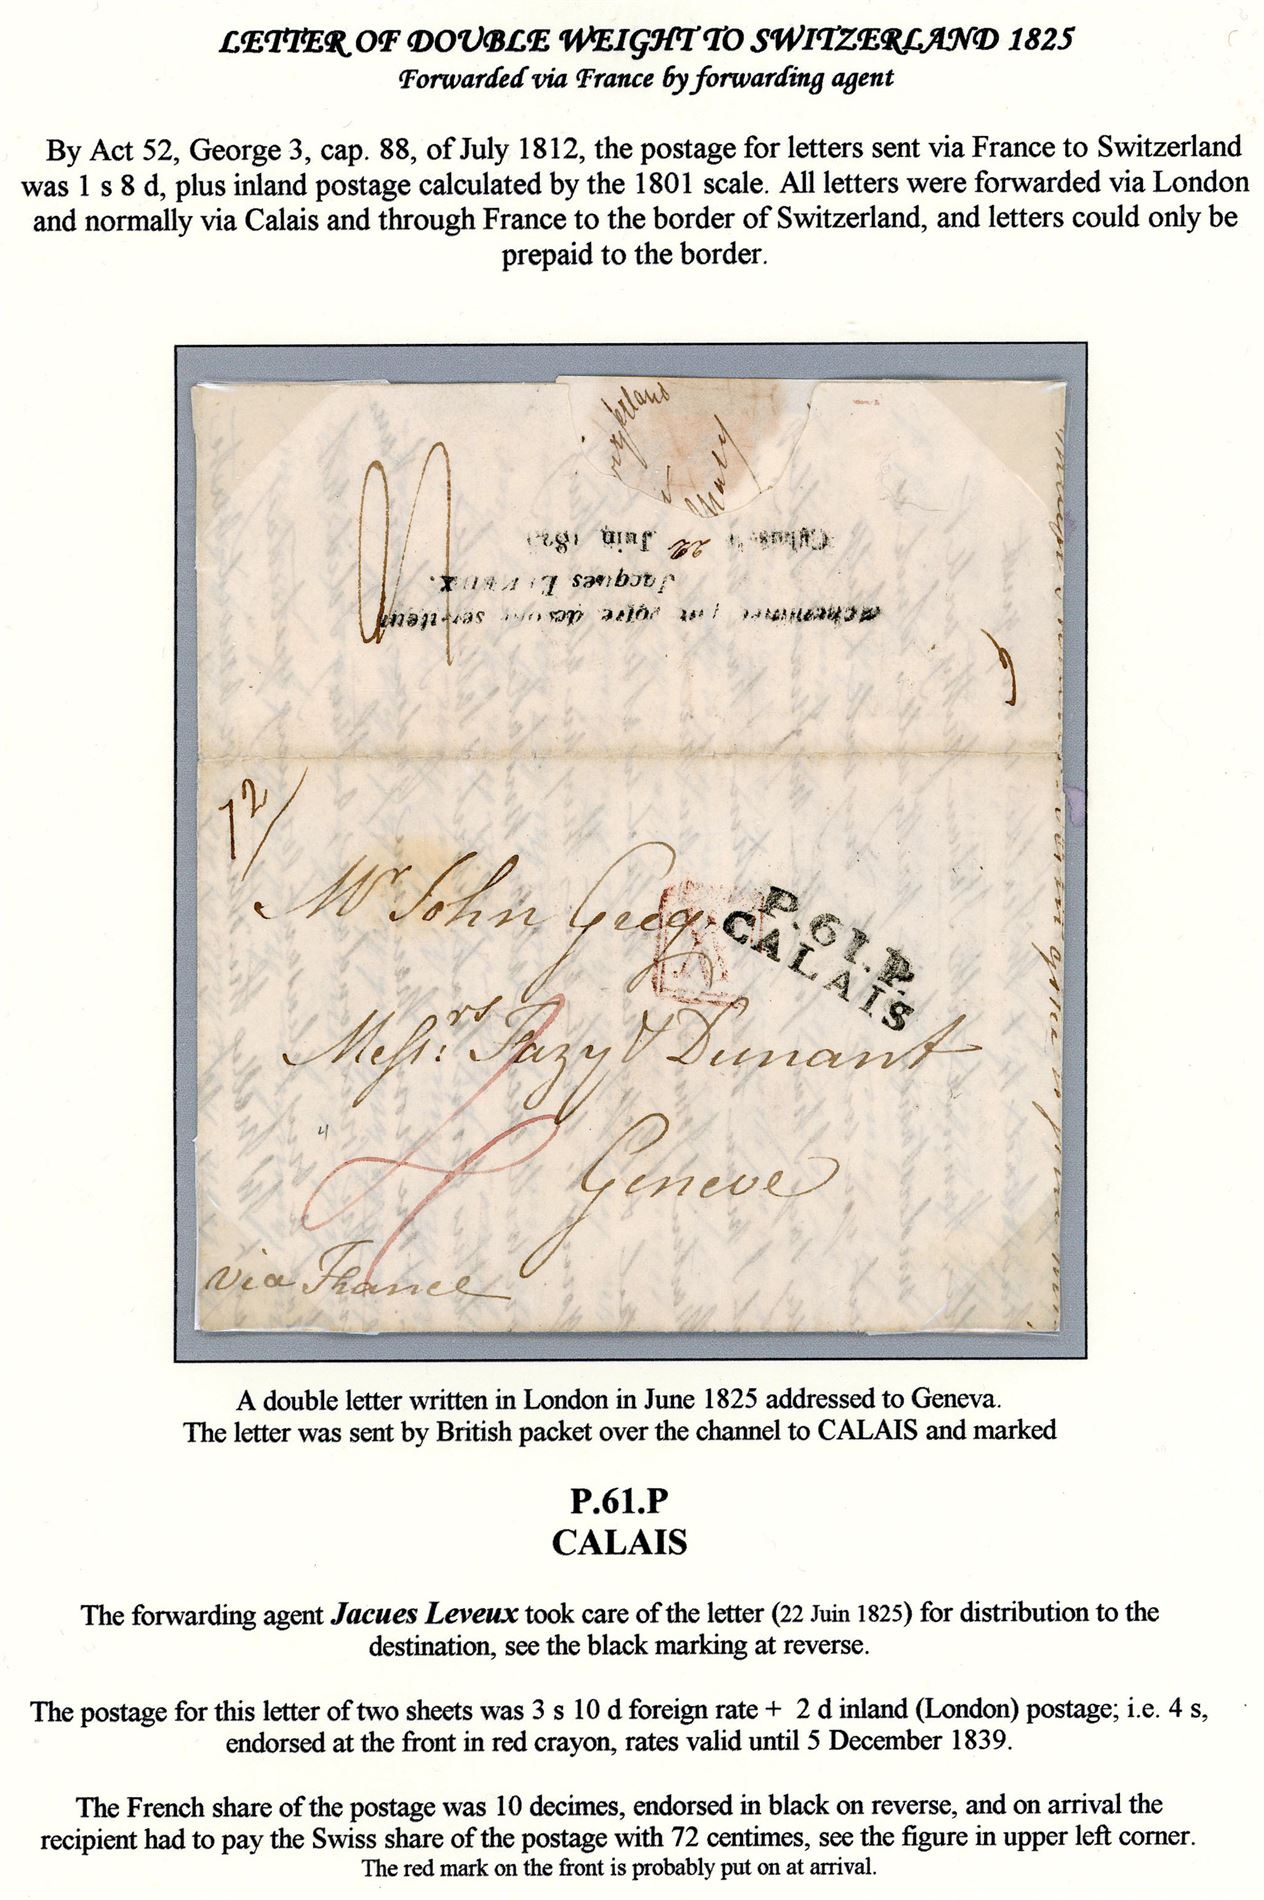 LETTER OF DOUBLE WEIGHT TO SWITZERLAND 1825
Forwarded via France by forwarding agent
By Act 52, George 3, cap. 88, of July 1812, the postage for letters sent via France to Switzerland
was 1 s 8 d, plus inland postage calculated by the 1801 scale. All letters were forwarded via London
and normally via Calais and through France to the border of Switzerland, and letters could only be
prepaid to the border.
Juin 182
22
Jacques
votre
72
Mr John Greg
P.61.P.
CALAIS
Messrs Fazy & Dunant
4
Geneve
via France
A double letter written in London in June 1825 addressed to Geneva.
The letter was sent by British packet over the channel to CALAIS and marked
P.61.P
CALAIS
The forwarding agent Jacues Leveux took care of the letter (22 Juin 1825) for distribution to the
destination, see the black marking at reverse.
The postage for this letter of two sheets was 3 s 10 d foreign rate + 2 d inland (London) postage; i.e. 4 s,
endorsed at the front in red crayon, rates valid until 5 December 1839.
The French share of the postage was 10 decimes, endorsed in black on reverse, and on arrival the
recipient had to pay the Swiss share of the postage with 72 centimes, see the figure in upper left corner.
The red mark on the front is probably put on at arrival.